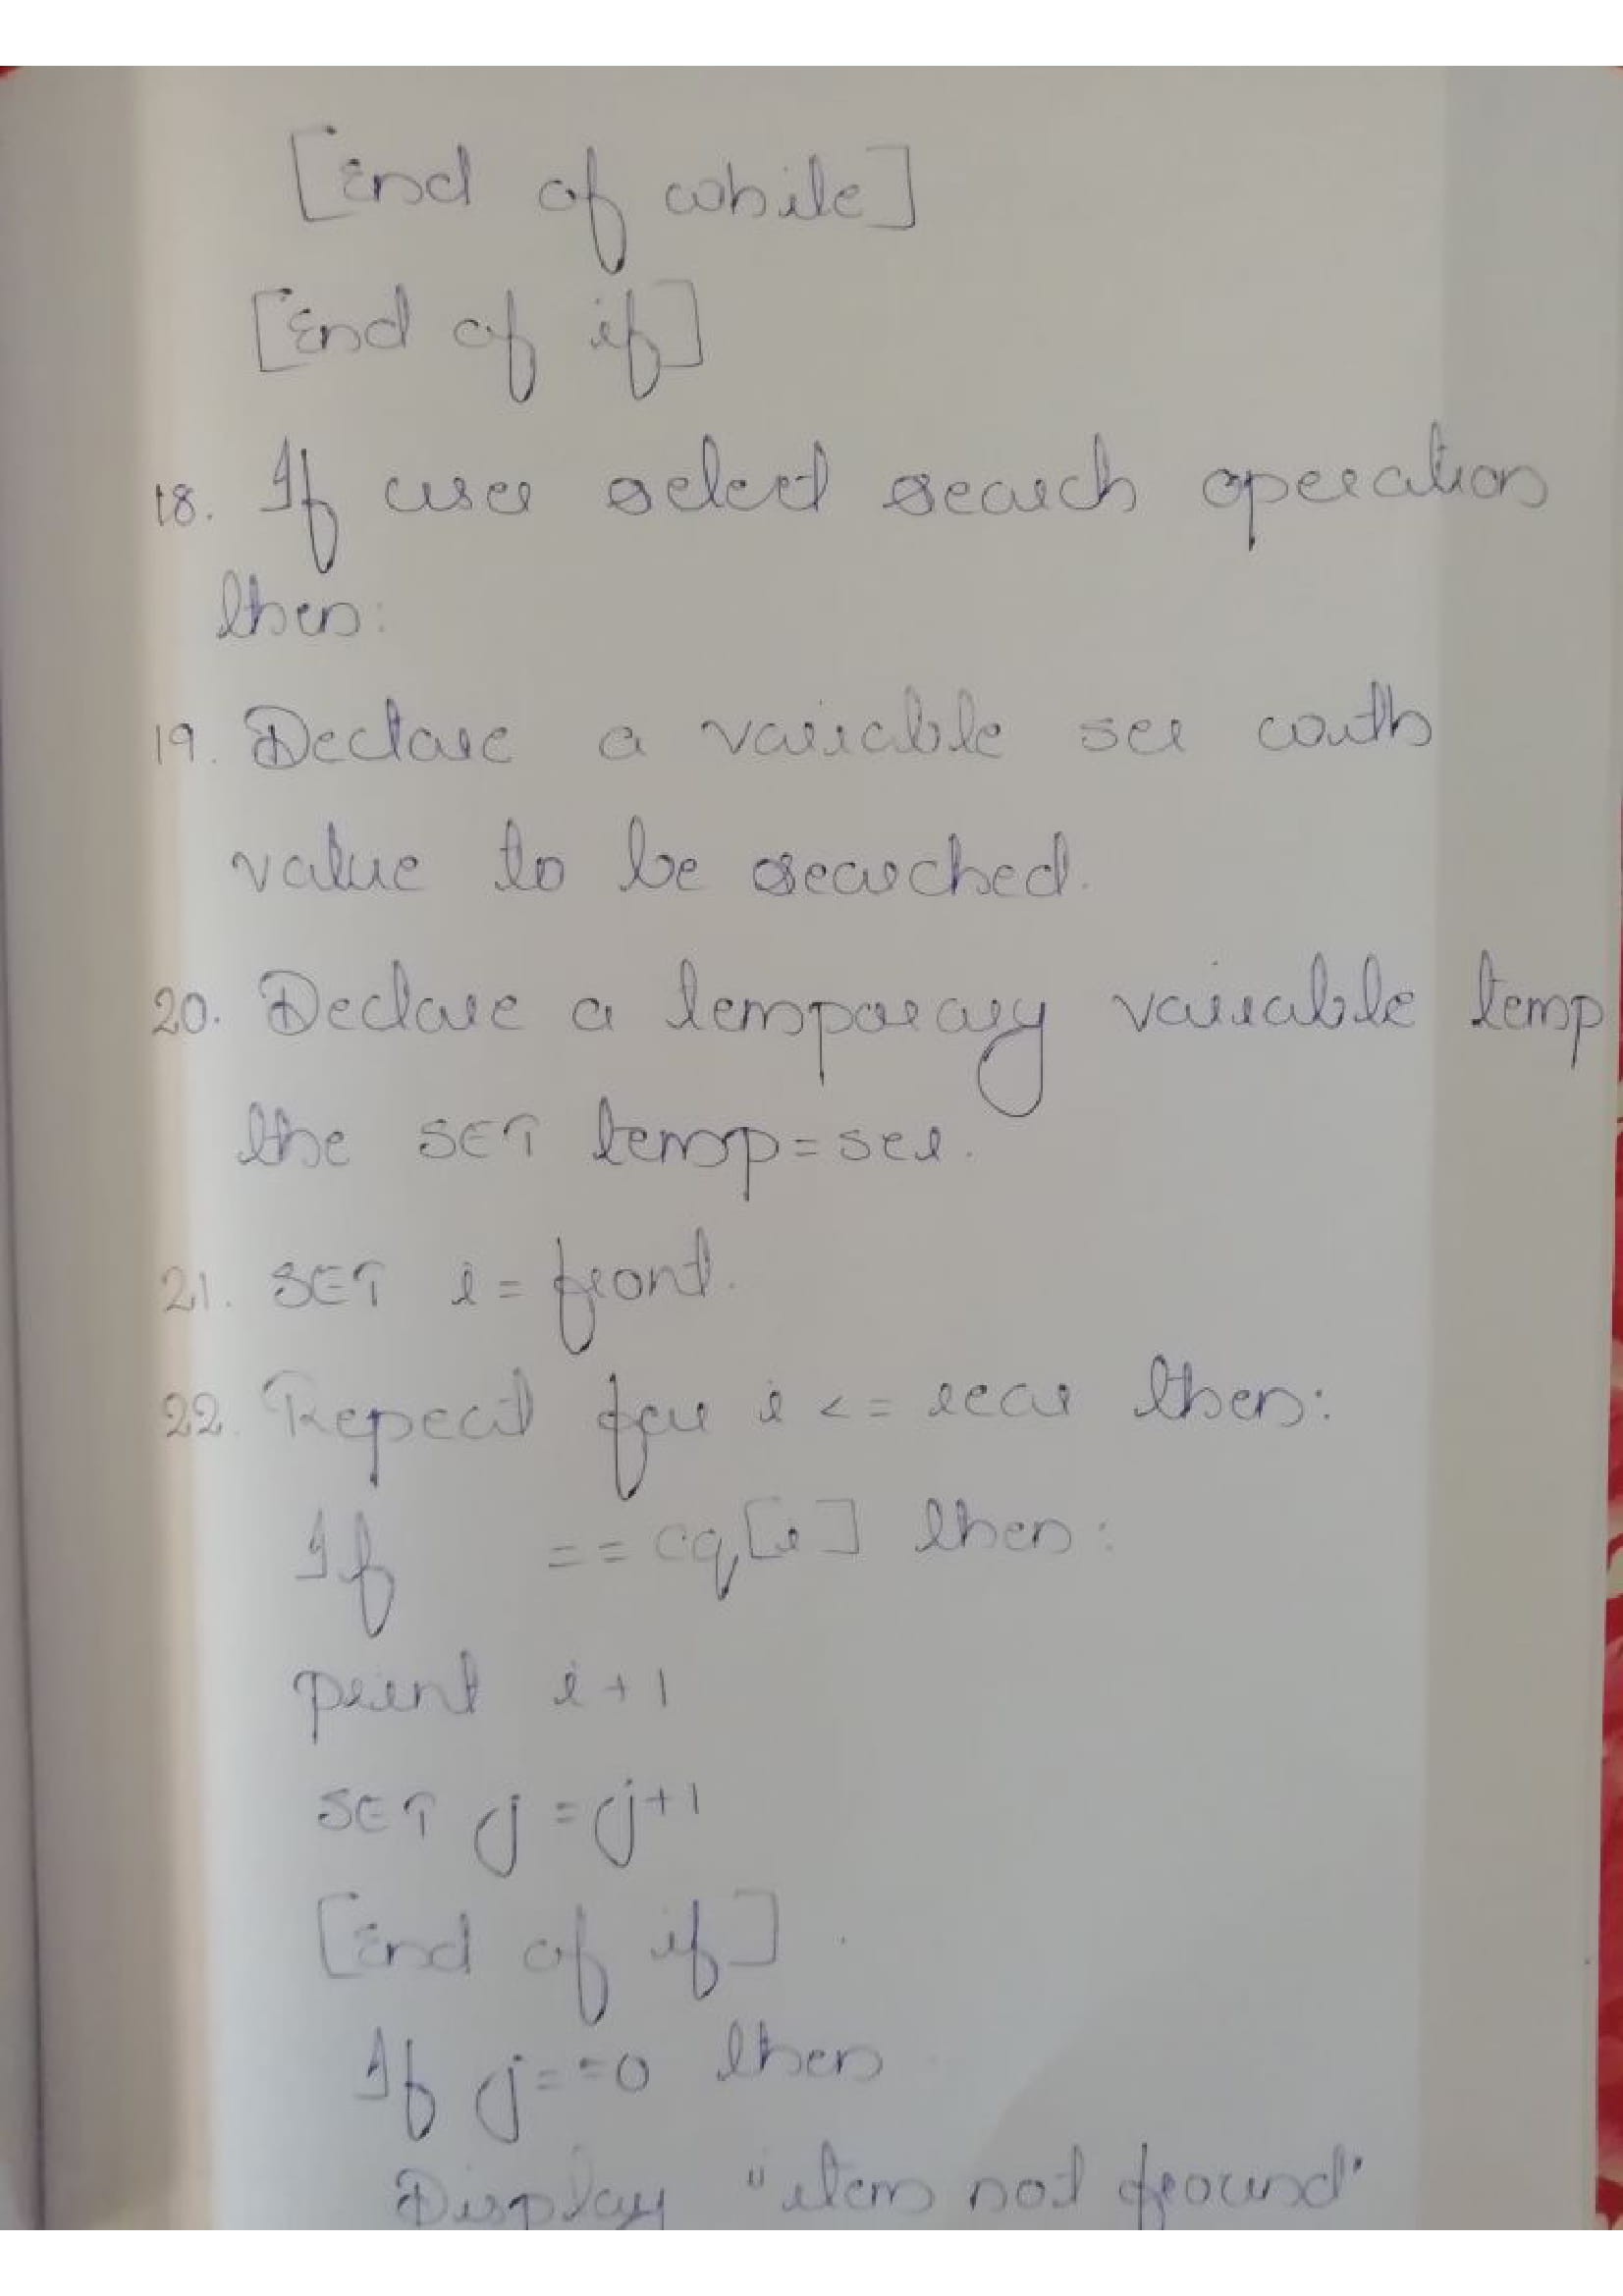 [End of while]
[End of if]
18. If user select search operation
then:
19. Declare a variable ser with
value to be searched.
20. Declare a temporary variable temp
the SET temp=ser.
21. SET i = front.
22. Repeat for i <= rear then:
If == cq[i] then:
print i+1
SET j=j+1
[End of if].
If j==0 then
Display "item not found"